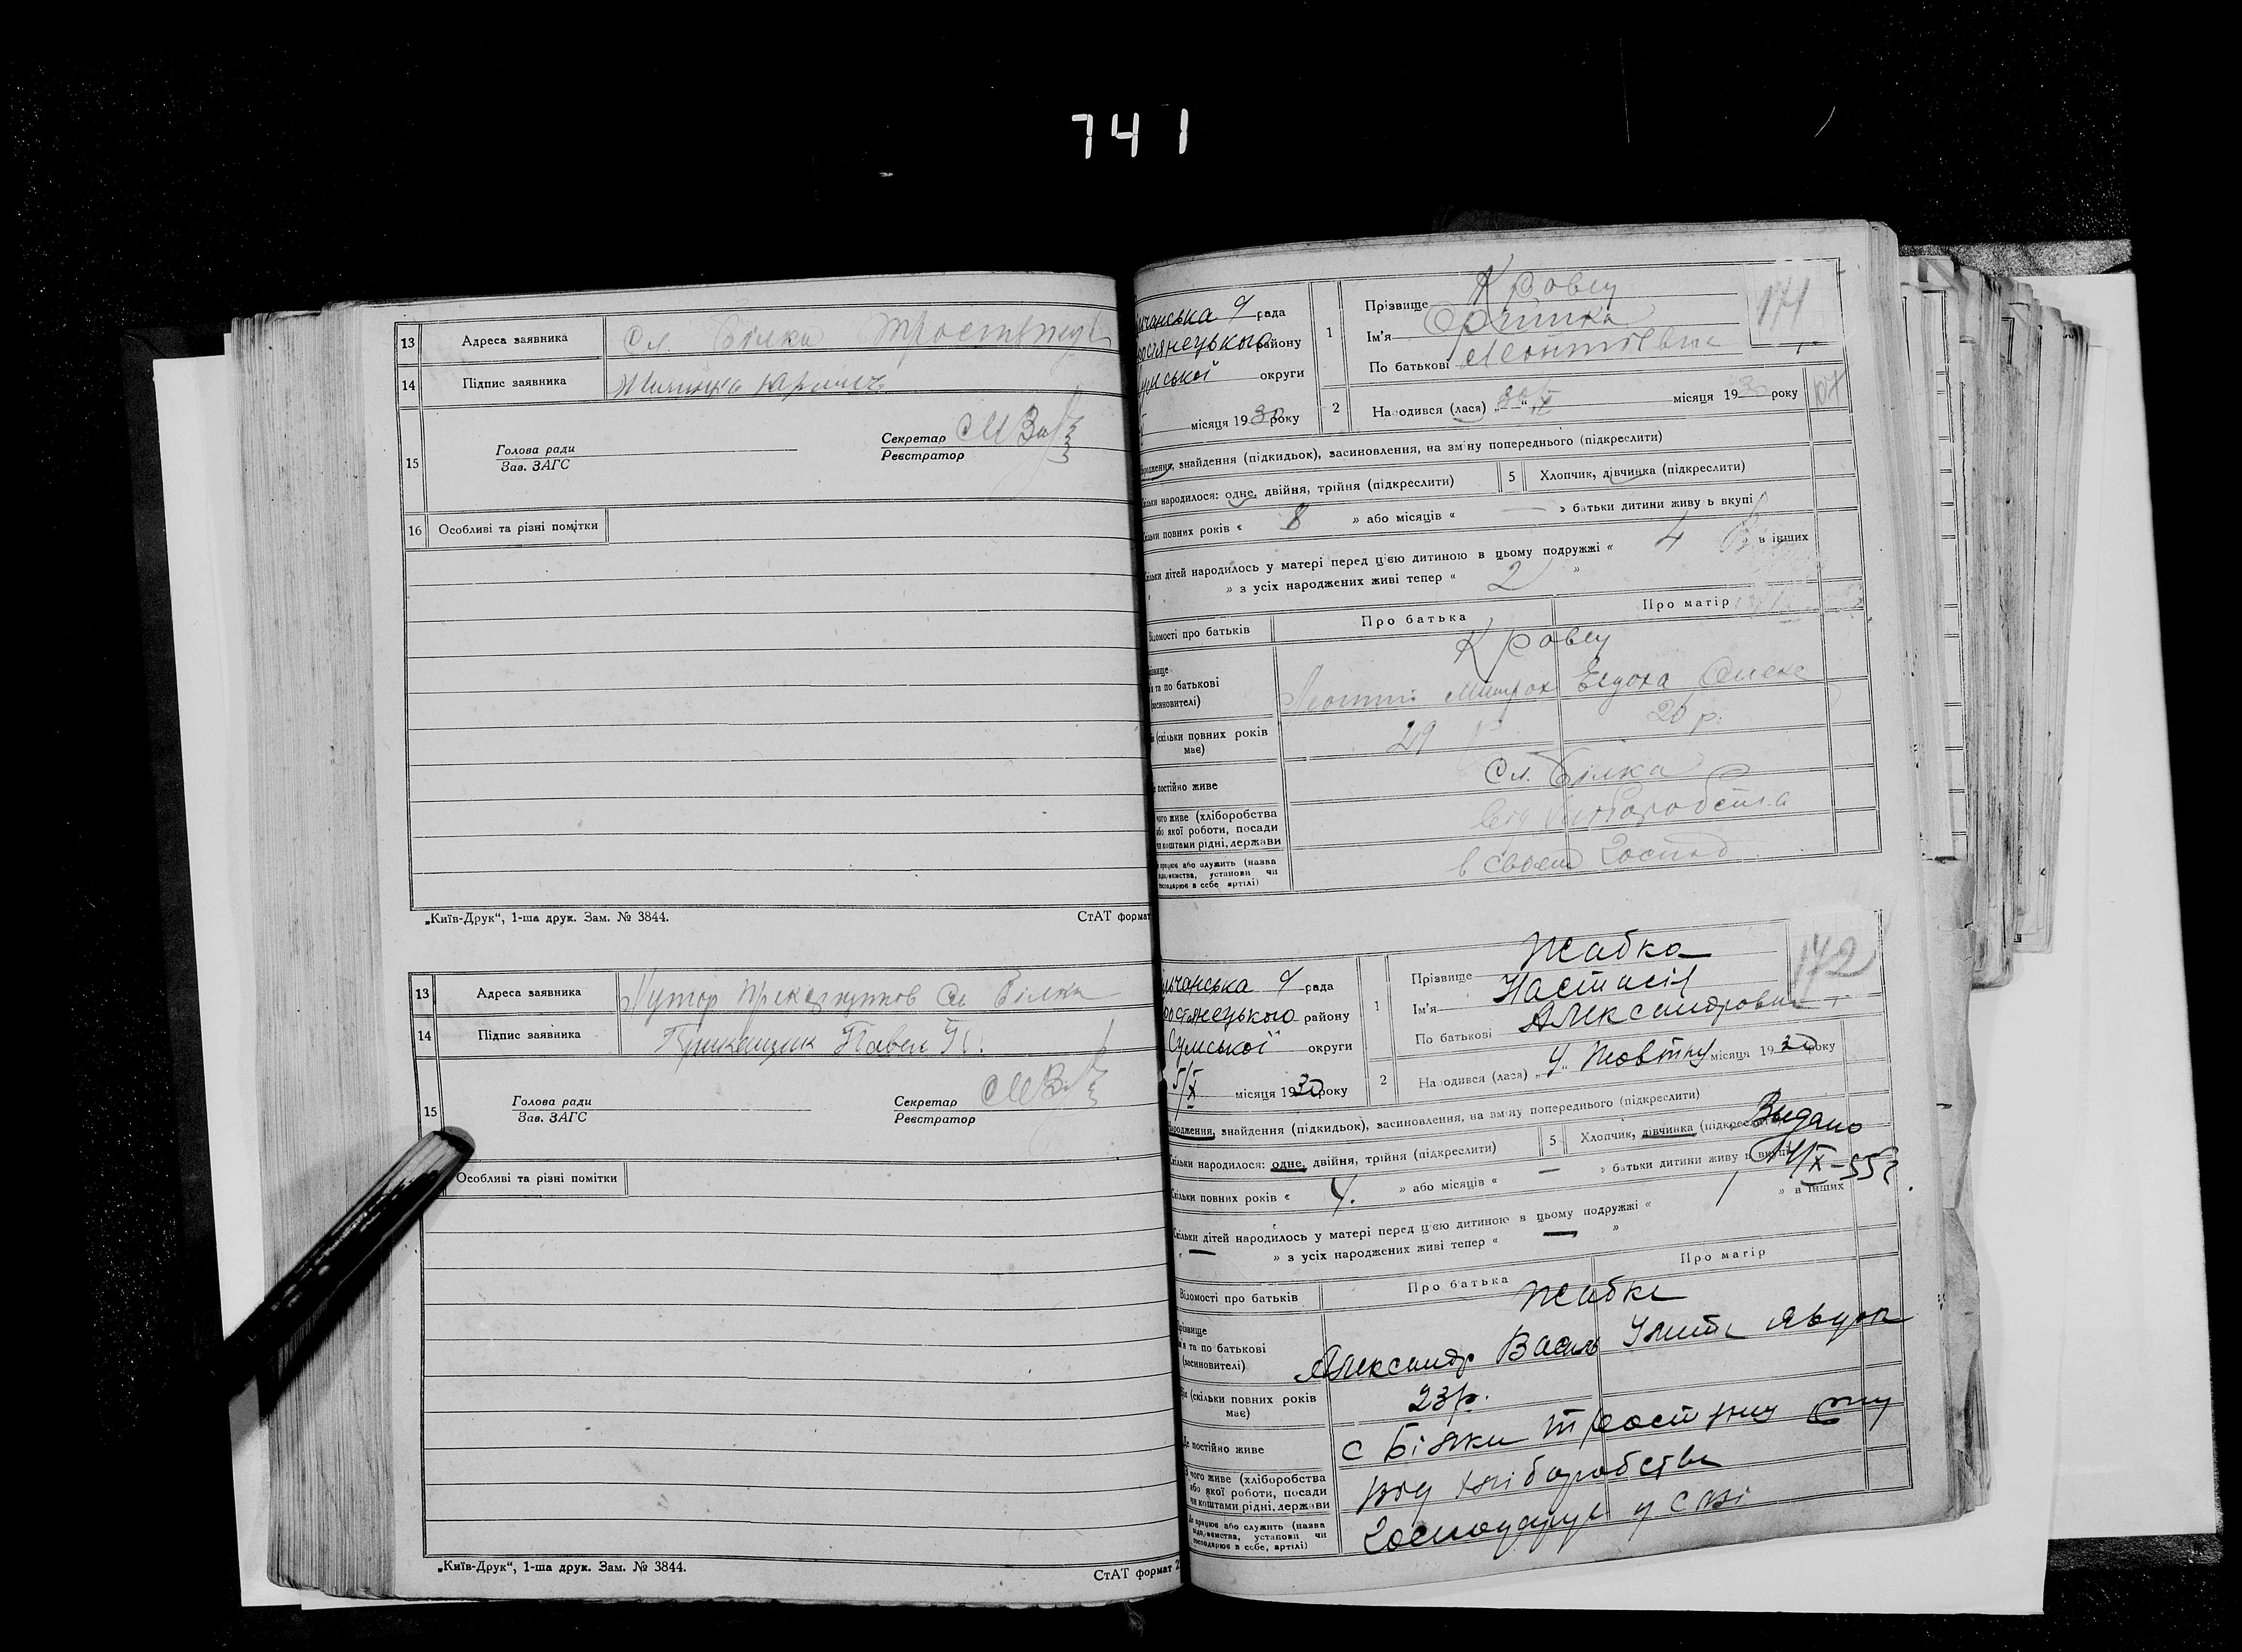 741
13 Адреса заявника Сл. Білка Тростянец
14 Підпис заявника
15 Голова ради
Зав. ЗАГС
Секретар
Реєстратор
16 Особливі та різні помітки
„Київ-Друк“, 1-ша друк. Зам. № 3844. СтАТ формат
13 Адреса заявника Хутор Сл Білка
14 Підпис заявника Прикащик Павел
15 Голова ради
Зав. ЗАГС
Секретар
Реєстратор
Особливі та різні помітки
„Київ-Друк“, 1-ша друк. Зам. № 3844. СтАТ формат 2
171
чанська рада
остянецького району
умської округи
місяця 1930 року
1 Прізвище Кровец
Ім'я Оришка
По батькові Леонтіевна
2 Народився (лася) „30“ ІХ місяця 1930 року
народження, знайдення (підкидьок), засиновлення, на зміну попереднього (підкреслити)
Скільки народилося: одне, двійня, трійня (підкреслити) 5 Хлопчик, дівчинка (підкреслити)
Скільки повних років « 8 » або місяців « — » батьки дитини живуть вкупі
Скільки дітей народилось у матері перед цією дитиною в цьому подружжі « 4 » в інших
» з усіх народжених живі тепер « 2 »
Відомості про батьків Про батька Про матір
Прізвище
ім'я та по батькові
(засиновителі)
Кровец
Леонтій Митроф Евдоха Олекс
Вік (скільки повних років має) 29 26 р.
Де постійно живе Сл. Білка
З чого живе (хліборобства
або якої роботи, посади
чи коштами рідні, держави
від хліборобства
Де працює або служить (назва
підприємства, установи чи
господарює в себе, артілі)
в своем господ
172
чанська рада
остянецького району
Сумської округи
5/X місяця 1930 року
1 Прізвище Жабка
Ім'я Настасія
По батькові Александровна
2 Народився (лася) „4“ Жовтня місяця 1930 року
народження, знайдення (підкидьок), засиновлення, на зміну попереднього (підкреслити)
Скільки народилося: одне, двійня, трійня (підкреслити) 5 Хлопчик, дівчинка (підкреслити)
Видано
14/X-55г
Скільки повних років « 4. » або місяців « — » батьки дитини живуть вкупі
Скільки дітей народилось у матері перед цією дитиною в цьому подружжі « 1 » в інших
» з усіх народжених живі тепер « — »
Відомості про батьків Про батька Про матір
Прізвище
ім'я та по батькові
(засиновителі)
Жабка
Александр Василь Улита Явдок
Вік (скільки повних років має) 23р.
Де постійно живе с Білки Тростянец Сум
З чого живе (хліборобства
або якої роботи, посади
чи коштами рідні, держави
від хліборобства
Де працює або служить (назва
підприємства, установи чи
господарює в себе, артілі)
Господарує у себе